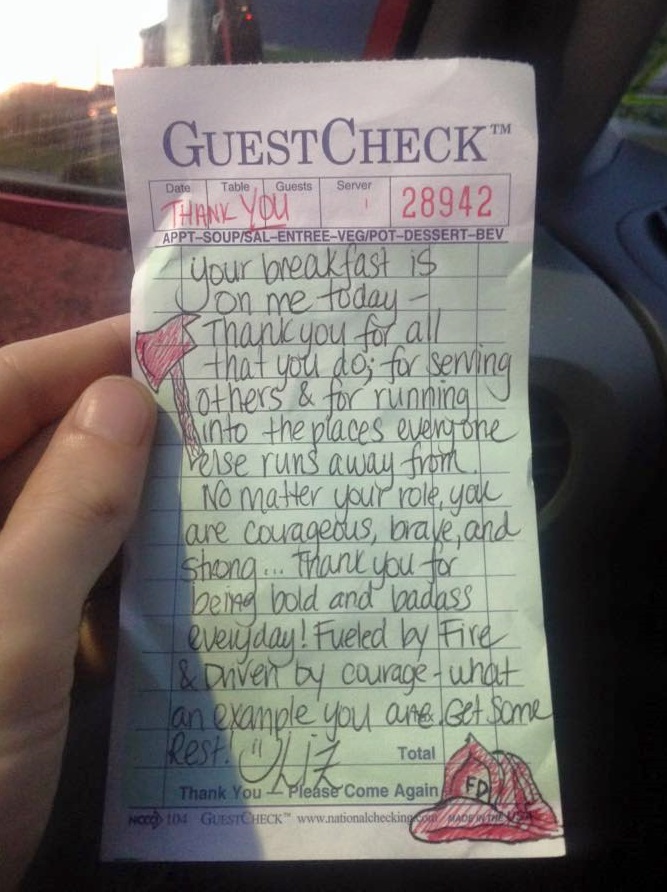 GUESTCHECK™
Date Table Guests Server
THANK YOU 28942
APPT–SOUP/SAL–ENTREE–VEG/POT–DESSERT–BEV
your breakfast is
on me today –
Thank you for all
that you do; for serving
others & for running
into the places everyone
else runs away from.
No matter your role, you
are courageous, brave, and
strong... Thank you for
being bold and badass
everyday! Fueled by Fire
& Driven by courage - what
an example you are. Get some
Rest. Liz
Total
Thank You – Please Come Again
FD
NCCO 104 GUESTCHECK™ www.nationalchecking.com MADE IN THE USA